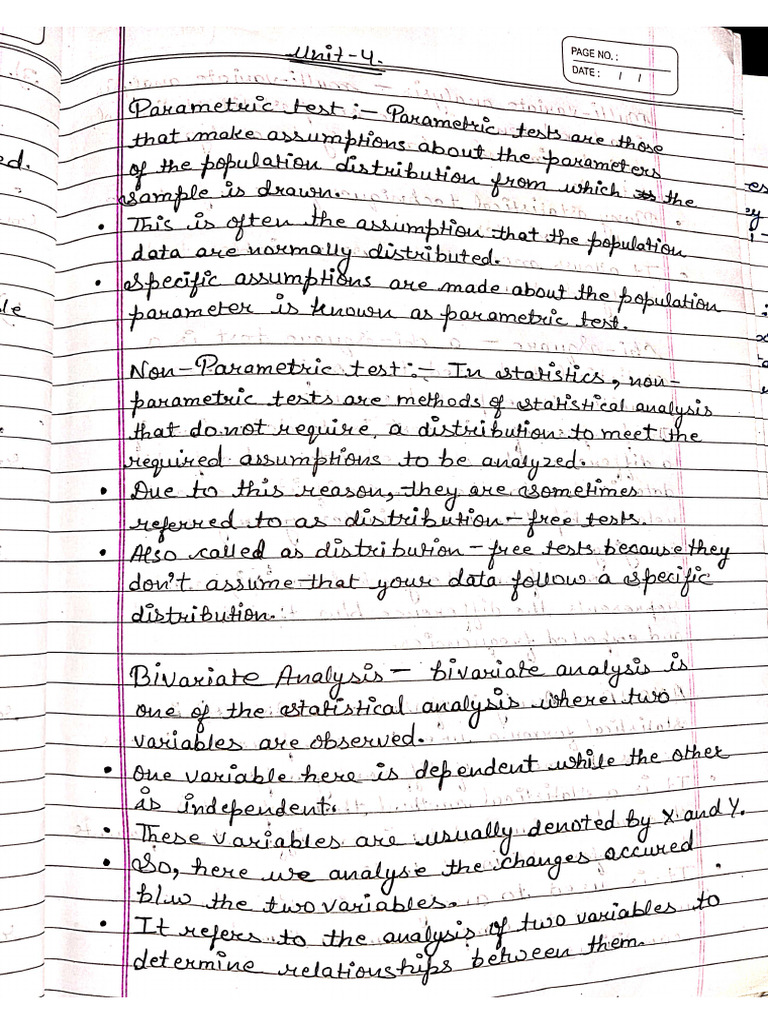 Unit-4.
PAGE NO. :
DATE : / /
Parametric test :- Parametric tests are those
that make assumptions about the parameters
of the population distribution from which the
sample is drawn.
• This is often the assumption that the population
data are normally distributed.
• Specific assumptions are made about the population
parameter is known as parametric test.
Non-Parametric test :- In statistics, non-
parametric tests are methods of statistical analysis
that do not require a distribution to meet the
required assumptions to be analyzed.
• Due to this reason, they are sometimes
referred to as distribution-free tests.
• Also called as distribution-free tests because they
don't assume that your data follow a specific
distribution.
Bivariate Analysis - bivariate analysis is
one of the statistical analysis where two
variables are observed.
• One variable here is dependent while the other
is independent.
• These variables are usually denoted by X and Y.
• So, here we analyse the changes accured
b/w the two variables.
• It refers to the analysis of two variables to
determine relationships between them.